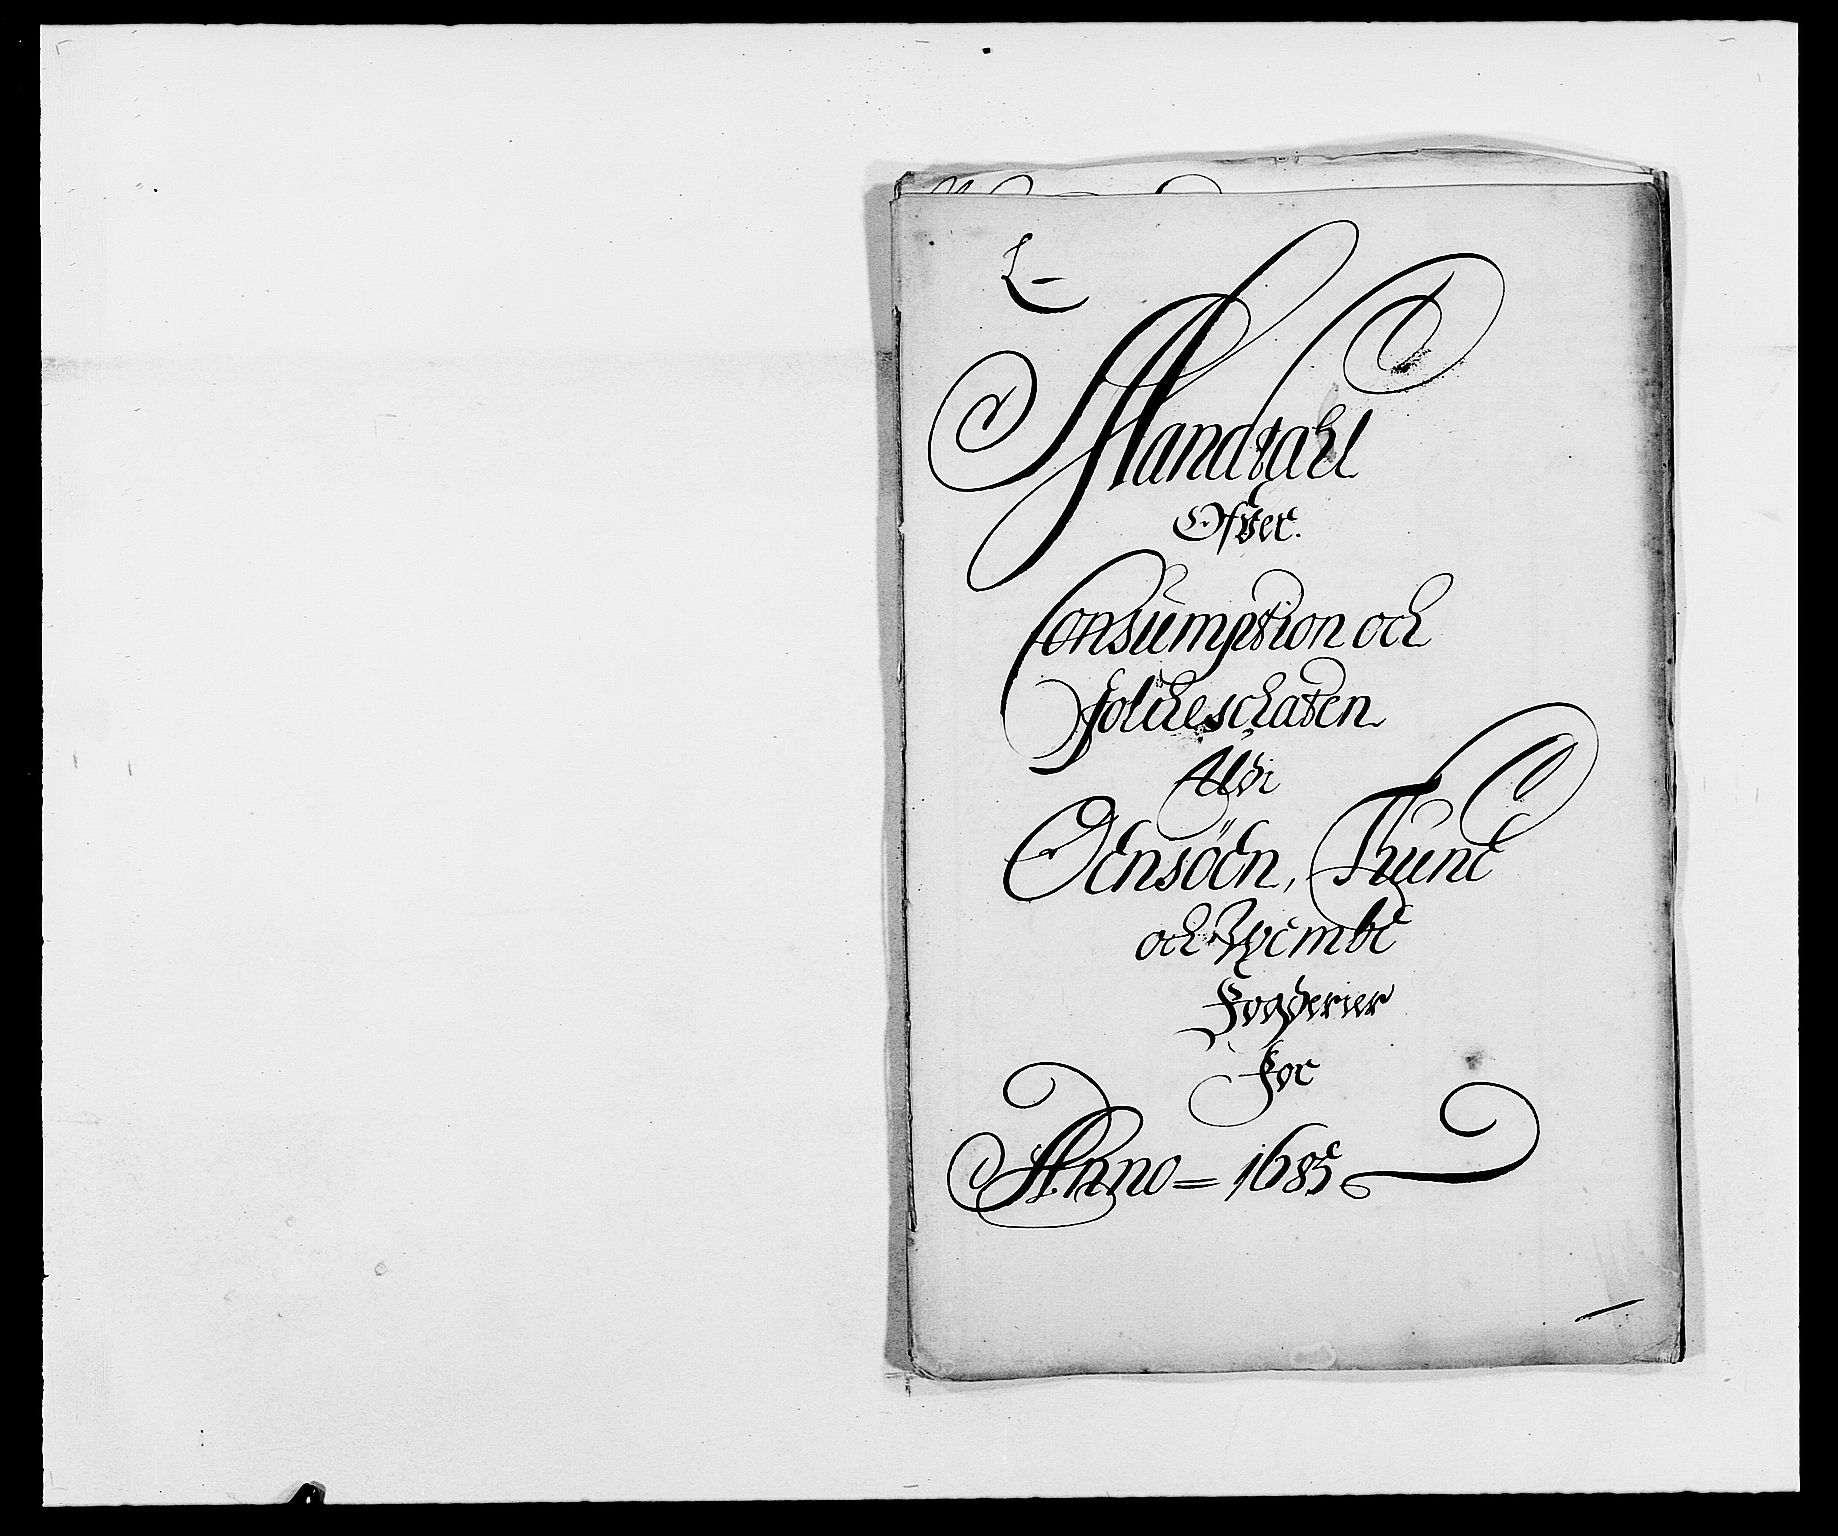 L
Mandtahl
Ofver.
Consumption och
folcheschaten
Udi
Oensöen, Thune
och Weembe
Fogderier
for
Anno = 1685